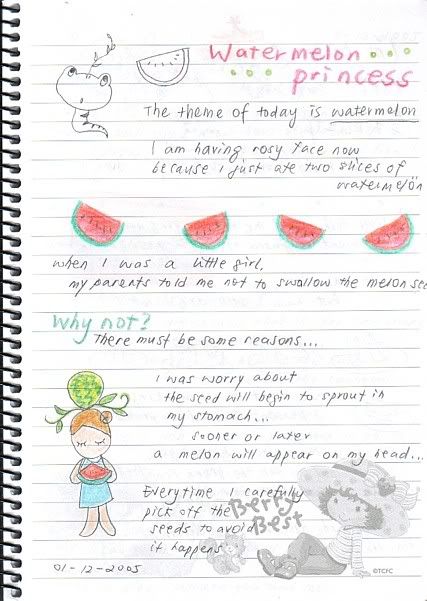 Watermelon
princess
The theme of today is watermelon
I am having rosy face now
because I just ate two slices of
watermelon
when I was a little girl,
my parents told me not to swallow the melon see
Why not?
There must be some reasons...
I was worry about
the seed will begin to sprout in
my stomach...
sooner or later
a melon will appear on my head...
Everytime I carefully
pick off the
seeds to avoid
it happens
Berry
Best
©TCFC
01-12-2005